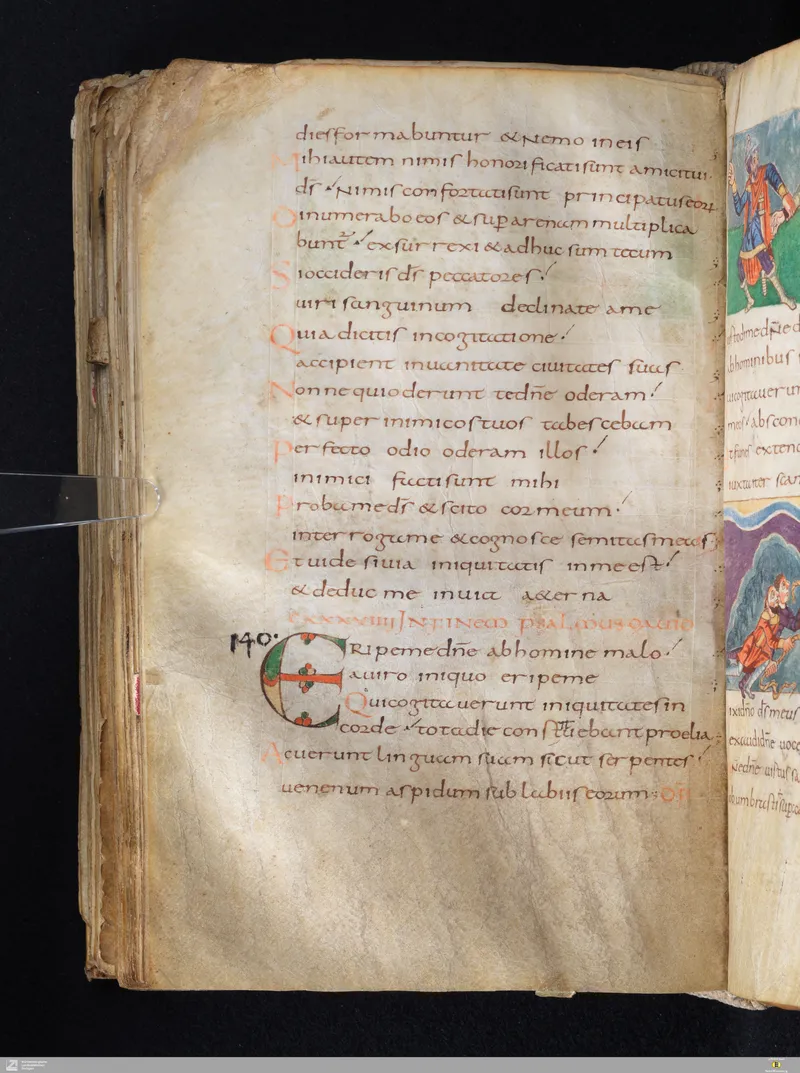 dies formabuntur & nemo in eis
Mihi autem nimis honorificati sunt amici tui
d̄s nimis confortatus ē principatus eorū
Dinumerabo eos & sup arenam multiplica
bunt̄ exsurrexi & adhuc sum tecum
Si occideris d̄s peccatores
uiri sanguinum declinate a me
Quia dicitis in cogitatione
accipient in uanitate ciuitates suas
Nonne qui oderunt te dn̄e oderam
& super inimicos tuos tabescebam
Perfecto odio oderam illos
inimici facti sunt mihi
Proba me d̄s & scito cor meum
interroga me & cognosce semitas meas
Et uide si uia iniquitatis in me est
& deduc me in uia aeterna
CXXXVIIII IN FINEM PSALMUS DAVID
140.
ERIpe me dn̄e ab homine malo
a uiro iniquo eripe me
Qui cogitauerunt iniquitates in
corde tota die constituebant proelia
Acuerunt linguam suam sicut serpentes
uenenum aspidum sub labiis eorum